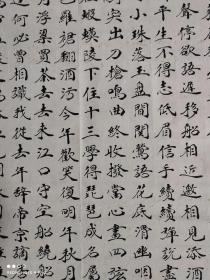 聲停欲語遲移船相近邀相見添酒
平生不得志低眉信手續續彈說
小珠落玉盤間關鶯語花底滑幽咽
突出刀槍鳴曲終收撥當心畫四弦
蝦蟆陵下住十三學得琵琶成名屬
色羅裙翻酒污今年歡笑復明年秋
月浮梁買茶去去來江口守空船繞
逢何必曾相識我從去年辭帝京謫